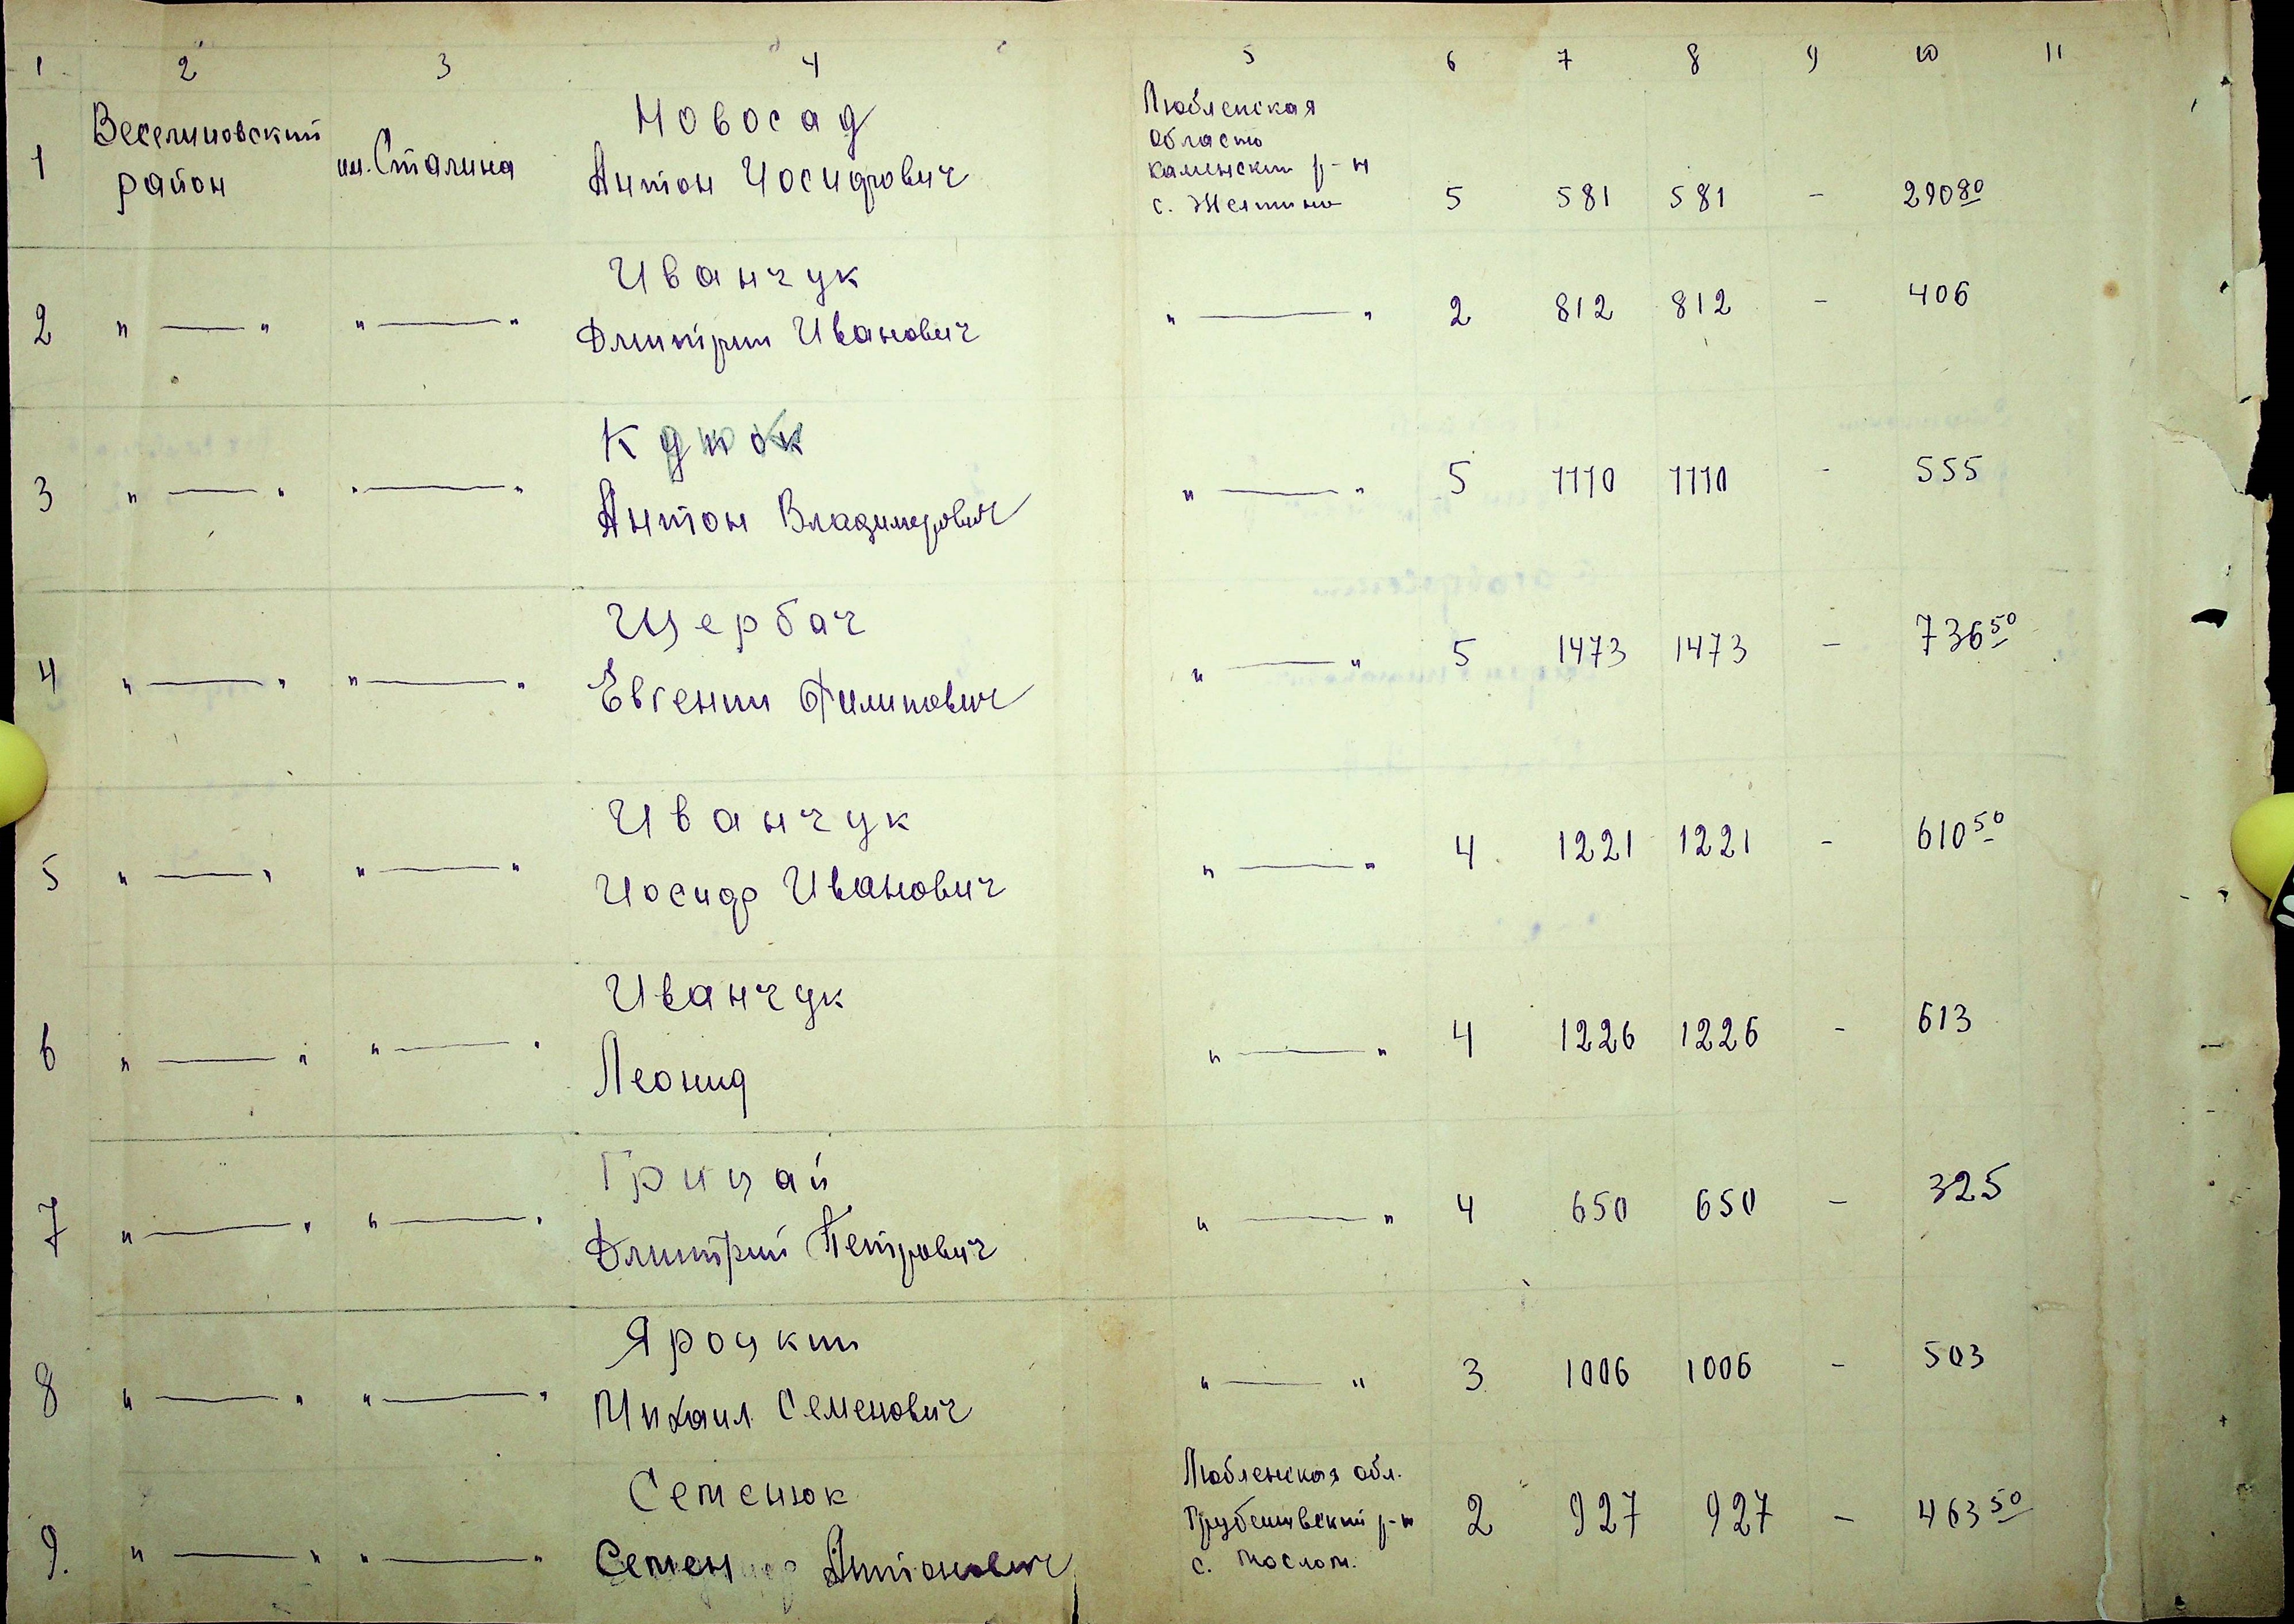 1 2 3 4 5 6 7 8 9 10 11
1 Веселиновский район им. Сталина Новосад Антон Иосифович Любленская область каменский р-н с. 5 581 581 - 290 80
2 " — " " — " Иванчук Дмитрий Иванович " — " 2 812 812 - 406
3 " — " " — " Антон Владимирович " — " 5 1110 1110 - 555
4 " — " " — " Щербач Евгений Филипович " — " 5 1473 1473 - 736 50
5 " — " " — " Иванчук Иосиф Иванович " — " 4 1221 1221 - 610 50
6 " — " " — " Иванчук Леонид " — " 4 1226 1226 - 613
7 " — " " — " Грицай Дмитрий Петрович " — " 4 650 650 - 325
8 " — " " — " Яроцкий Михаил Семенович " — " 3 1006 1006 - 503
9. " — " " — " Семенюк Семен Антонович Любленская обл. Грубешивский р-н с. 2 927 927 - 463 50